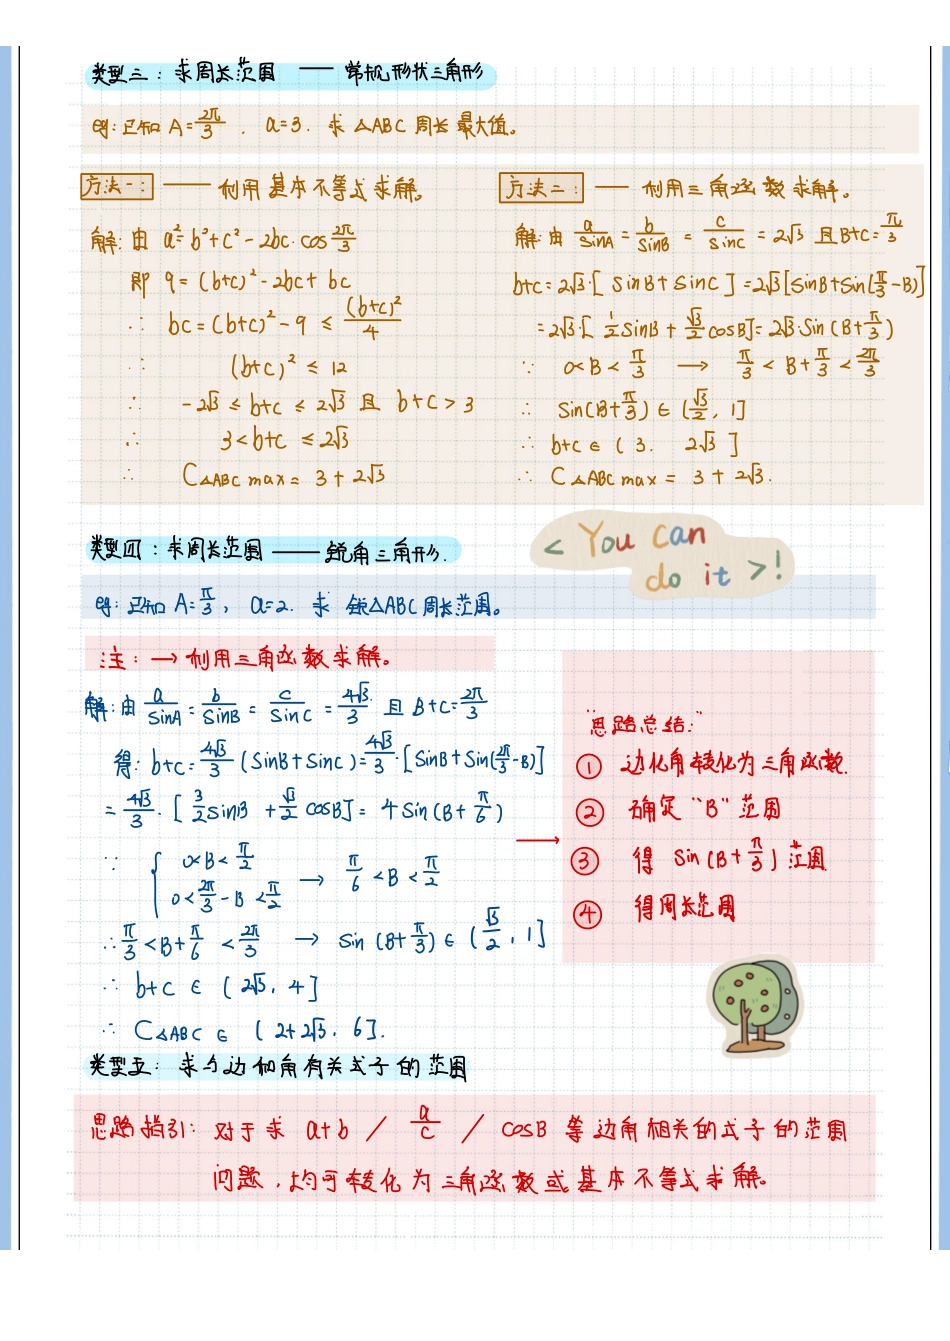 类型三：求周长范围 —— 常规形状三角形
例：已知 A=2π/3 , a=3. 求 △ABC 周长最大值。
方法一： —— 利用基本不等式求解。
解：由 a²=b²+c²-2bc·cos 2π/3
即 9=(b+c)²-2bc+bc
∴ bc=(b+c)²-9 ≤ (b+c)²/4
∴ (b+c)² ≤ 12
∴ -2√3 ≤ b+c ≤ 2√3 且 b+c > 3
∴ 3<b+c ≤2√3
∴ C△ABC max = 3+2√3
方法二： —— 利用三角函数求解。
解：由 a/sinA = b/sinB = c/sinC = 2√3 且 B+C=π/3
b+c=2√3·[sinB+sinC]=2√3[sinB+sin(π/3-B)]
=2√3·[1/2 sinB+√3/2 cosB]=2√3·sin(B+π/3)
∵ 0<B<π/3 → π/3<B+π/3<2π/3
∴ sin(B+π/3)∈(√3/2, 1]
∴ b+c∈(3. 2√3]
∴ C△ABC max = 3+2√3.
类型四：求周长范围 —— 锐角三角形.
< You can
do it >!
例：已知 A=π/3, a=2. 求 锐△ABC周长范围。
注：→ 利用三角函数求解。
解：由 a/sinA = b/sinB = c/sinC = 4√3/3 且 B+C=2π/3
得：b+c=4√3/3 (sinB+sinC)=4√3/3·[sinB+sin(2π/3-B)]
=4√3/3·[3/2 sinB+√3/2 cosB]=4sin(B+π/6)
∵ { 0<B<π/2
0<2π/3-B<π/2 → π/6<B<π/2
∴ π/3<B+π/6<2π/3 → sin(B+π/3)∈(√3/2, 1]
∴ b+c∈(2√3, 4]
∴ C△ABC∈(2+2√3, 6].
"思路总结:"
① 边化角转化为三角函数.
② 确定"B"范围
③ 得 sin(B+π/3)范围
④ 得周长范围
→
类型五：求与边和角有关式子的范围
思路指引：对于求 a+b / a/c / cosB 等边角相关的式子的范围
问题，均可转化为三角函数或基本不等式求解。